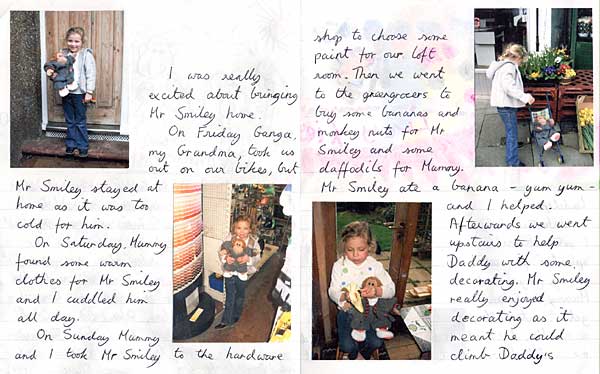 I was really
excited about bringing
Mr Smiley home.
On Friday Genga,
my Grandma, took us
out on our bikes, but
Mr Smiley stayed at
home as it was too
cold for him.
On Saturday, Mummy
found some warm
clothes for Mr Smiley
and I cuddled him
all day.
On Sunday Mummy
and I took Mr Smiley to the hardware
shop to choose some
paint for our loft
room. Then we went
to the greengrocers to
buy some bananas and
monkey nuts for Mr
Smiley and some
daffodils for Mummy.
Mr Smiley ate a banana - yum yum -
and I helped.
Afterwards we went
upstairs to help
Daddy with some
decorating. Mr Smiley
really enjoyed
decorating as it
meant he could
climb Daddy's